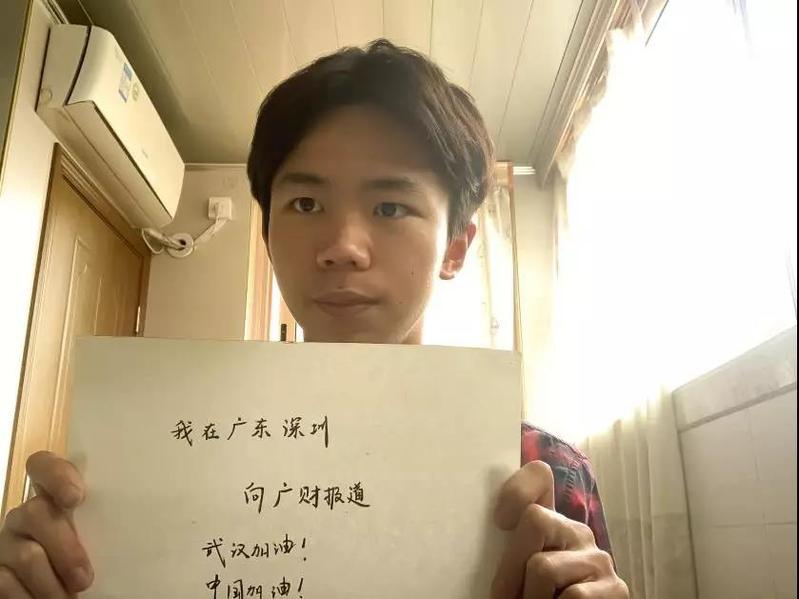 我在广东深圳
向广财报道
武汉加油！
中国加油！